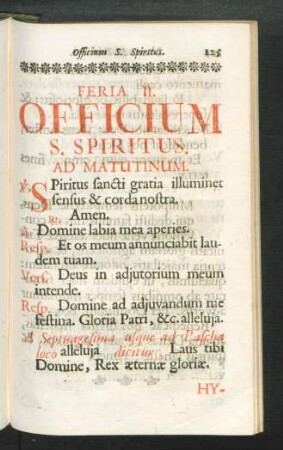 Officium S. Spiritus. 125
FERIA II.
OFFICIUM
S. SPIRITUS.
AD MATUTINUM.
℣. SPiritus sancti gratia illuminet
sensus & corda nostra.
℟. Amen.
Domine labia mea aperies.
Resp. Et os meum annunciabit lau-
dem tuam.
Vers. Deus in adjutorium meum
intende.
Resp. Domine ad adjuvandum me
festina. Gloria Patri, &c. alleluja.
A Septuagesima usque ad Pascha
loco alleluja dicitur Laus tibi
Domine, Rex æternæ gloriæ.
HY-